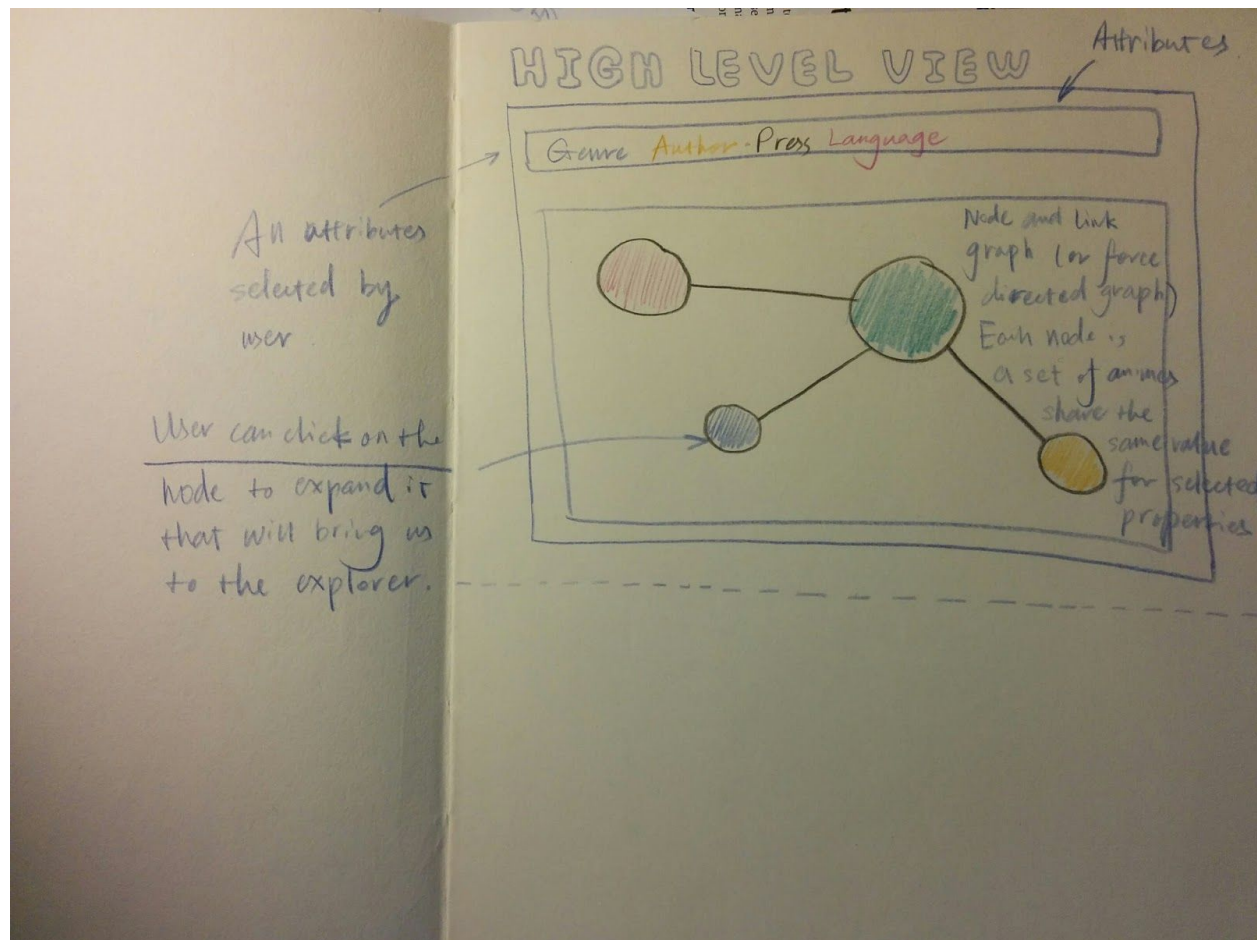 HIGH LEVEL VIEW
Attributes
Genre Author Press Language
An attributes
selected by
user
Node and link
graph (or force
directed graph)
Each node is
a set of animes
share the
same value
for selected
properties
User can click on the
node to expand it
that will bring us
to the explorer.